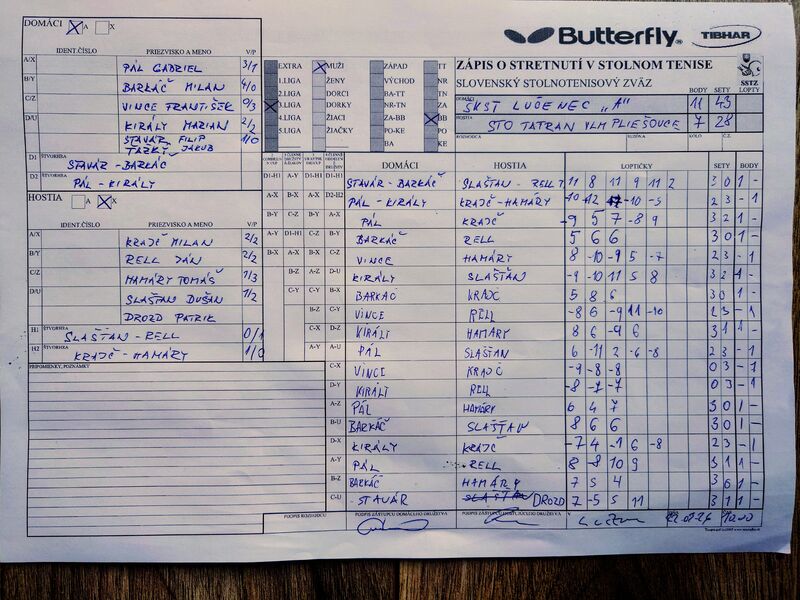 DOMÁCI A X
Butterfly TIBHAR
IDENT.ČÍSLO PRIEZVISKO A MENO V/P
A/X PÁL GABRIEL 3/1
B/Y BARKÁČ MILAN 4/0
C/Z VINCE FRANTIŠEK 0/3
D/U KIRÁLY MARIAN 2/2
STAVÁR FILIP 1/0
JAKUB
D1 ŠTVORHRA STAVÁR - BARKÁČ
D2 PÁL - KIRÁLY
EXTRA MUŽI ZÁPAD TT
1.LIGA ŽENY VÝCHOD NR
2.LIGA DORCI BA-TT TN
3.LIGA DORKY NR-TN ZA
4.LIGA ŽIACI ZA-BB BB
5.LIGA ŽIAČKY PO-KE PO
BA KE
ZÁPIS O STRETNUTÍ V STOLNOM TENISE
SLOVENSKÝ STOLNOTENISOVÝ ZVÄZ
SSTZ
BODY SETY LOPTY
DOMÁCI ŠKST LUČENEC „A" 11 43
HOSTIA STO TATRAN VLM PLIEŠOVCE 7 28
HOSTIA A X
IDENT.ČÍSLO PRIEZVISKO A MENO V/P
A/X KRAJČ MILAN 2/2
B/Y RELL JÁN 2/2
C/Z HAMÁRY TOMÁŠ 1/3
D/U SLAŠŤAN DUŠAN 1/2
DROZD PATRIK
H1 ŠTVORHRA SLAŠŤAN - RELL 0/1
H2 ŠTVORHRA KRAJČ - HAMÁRY 1/0
PRIPOMIENKY, POZNÁMKY
DOMÁCI HOSTIA LOPTIČKY SETY BODY
D1-H1 A-Y D1-H1 D1-H1 STAVÁR - BARKÁČ SLAŠŤAN - RELL 11 8 11 9 11 2 3 0 1 -
A-X B-X A-X D2-H2 PÁL - KIRÁLY KRAJČ - HAMÁRY -10 -5 2 3 - 1
B-Y C-Z B-Y A-X PÁL KRAJČ -9 5 7 -8 9 3 2 1 -
A-Y D1-H1 C-Z B-Y BARKÁČ RELL 5 6 6 3 0 1 -
B-X A-X B-X C-Z VINCE HAMÁRY 8 -10 -9 5 -7 2 3 - 1
B-Z A-Z D-U KIRÁLY SLAŠŤAN -9 -10 11 5 8 3 2 1 -
C-Y C-Y B-X BARKÁČ KRAJČ 5 8 6 3 0 1 -
B-Z C-Y VINCE RELL -8 6 -9 11 -10 2 3 - 1
C-X D-Z KIRÁLI HAMÁRY 8 6 -9 6 3 1 1 -
A-Y A-U PÁL SLAŠŤAN 6 -11 2 -6 -8 2 3 - 1
C-X VINCE KRAJČ -9 -8 -8 0 3 - 1
D-Y KIRÁLI RELL -8 -7 -7 0 3 - 1
A-Z PÁL HAMÁRY 6 4 7 3 0 1 -
B-U BARKÁČ SLAŠŤAN 8 6 6 3 0 1 -
D-X KIRÁLY KRAJČ -7 4 -1 6 -8 2 3 - 1
A-Y PÁL RELL 8 -8 10 9 3 1 1 -
B-Z BARKÁČ HAMÁRY 7 5 4 3 0 1 -
C-U STAVÁR DROZD 7 -5 5 11 3 1 1 -
PODPIS ROZHODCU PODPIS ZÁSTUPCU DOMÁCEHO DRUŽSTVA PODPIS ZÁSTUPCU HOSŤUJÚCEHO DRUŽSTVA V 10.00